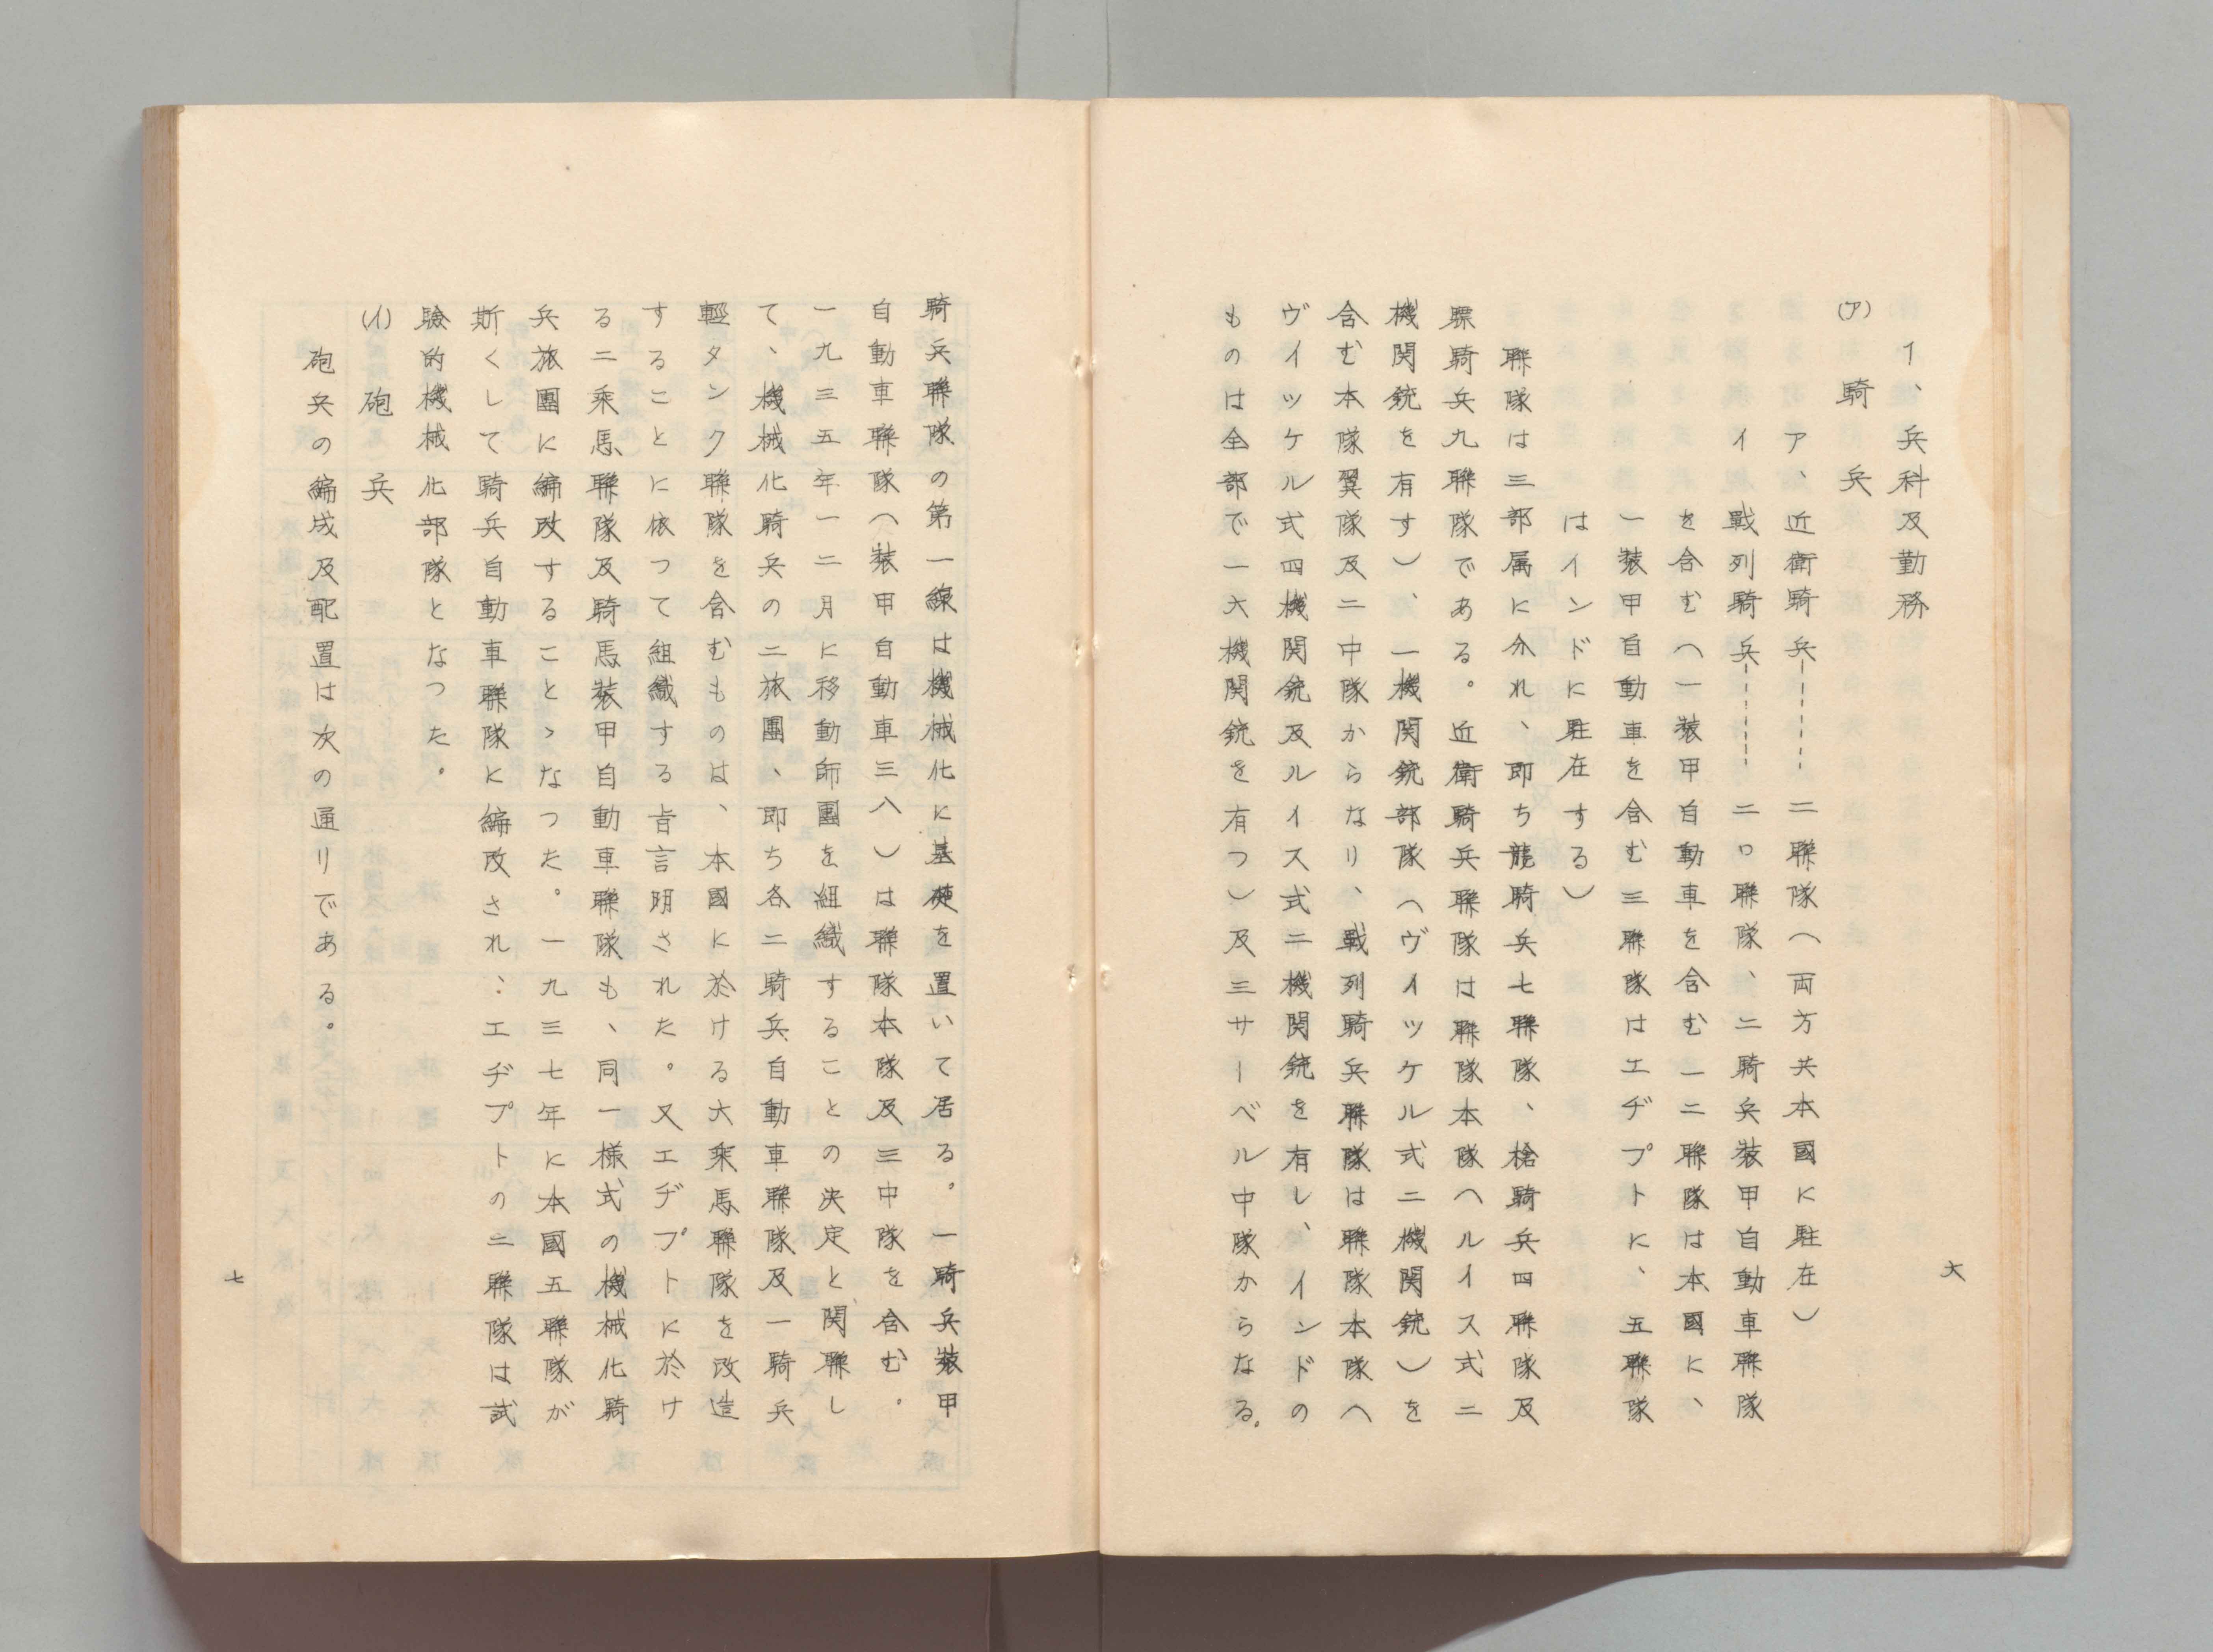 六
1、兵科及勤務
(ア) 騎兵
ア、近衛騎兵------二聯隊(両方共本國に駐在)
イ 戰列騎兵------二〇聯隊、二騎兵装甲自動車聯隊
を含む(一装甲自動車を含む一二聯隊は本國に、
一装甲自動車を含む三聯隊はエヂプトに、五聯隊
はインドに駐在する)
聯隊は三部属に分れ、即ち龍騎兵七聯隊、槍騎兵四聯隊及
驃騎兵九聯隊である。近衛騎兵聯隊は聯隊本隊(ルイス式二
機関銃を有す)、一機関銃部隊(ヴイツケル式二機関銃)を
含む本隊翼隊及二中隊からなり、戰列騎兵聯隊は聯隊本隊(
ヴイツケル式四機関銃及ルイス式二機関銃を有し、インドの
ものは全部で一六機関銃を有つ)及三サーベル中隊からなる。
騎兵聯隊の第一線は機械化に基礎を置いて居る。一騎兵装甲
自動車聯隊(装甲自動車三八)は聯隊本隊及三中隊を含む。
一九三五年一二月に移動師團を組織することの決定と関聯し
て、機械化騎兵の二旅團、即ち各二騎兵自動車聯隊及一騎兵
輕タンク聯隊を含むものは、本國に於ける六乘馬聯隊を改造
することに依つて組織する旨言明された。又エヂプトに於け
る二乘馬聯隊及騎馬装甲自動車聯隊も、同一様式の機械化騎
兵旅團に編改することゝなつた。一九三七年に本國五聯隊が
斯くして騎兵自動車聯隊に編改され、エヂプトの二聯隊は試
驗的機械化部隊となつた。
(イ) 砲兵
砲兵の編成及配置は次の通りである。
七